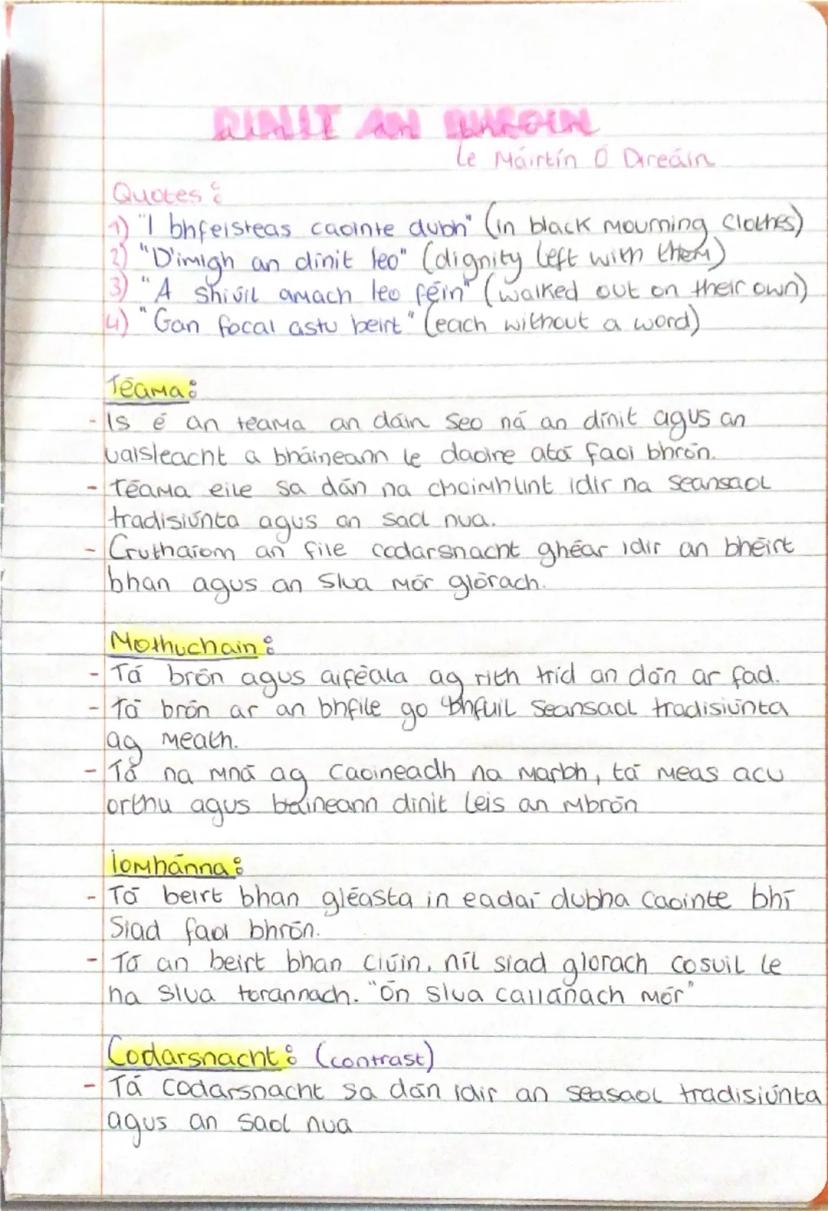 DINIT AN BHRÓIN
le Máirtín Ó Direáin
Quotes:
1) "I bhfeisteas caointe dubh" (in black mourning clothes)
2) "D'imigh an dínit leo" (dignity left with them)
3) "A shiúil amach leo féin" (walked out on their own)
4) "Gan focal astu beirt" (each without a word)
Téama:
- Is é an teama an dáin seo ná an dínit agus an
uaisleacht a bháineann le daoine atá faoi bhrón.
- Téama eile sa dán na choimhlint idir na seansaol
tradisiúnta agus an saol nua.
- Cruthaíom an file codarsnacht ghéar idir an bheirt
bhan agus an slua mór glórach.
Mothuchain:
- Tá brón agus aiféala ag rith tríd an dán ar fad.
- Tá brón ar an bhfile go bhfuil seansaol tradisiúnta
ag meath.
- Tá na mná ag caoineadh na marbh, tá meas acu
orthu agus baineann dinit leis an mbrón
Íomhánna:
- Tá beirt bhan gléasta in eadaí dubha caointe bhí
siad faoi bhrón.
- Tá an beirt bhan ciúin, níl siad glorach cosuil le
na slua torannach. "Ón slua callánach mór"
Codarsnacht: (contrast)
- Tá codarsnacht sa dán idir an seasaol tradisiúnta
agus an saol nua